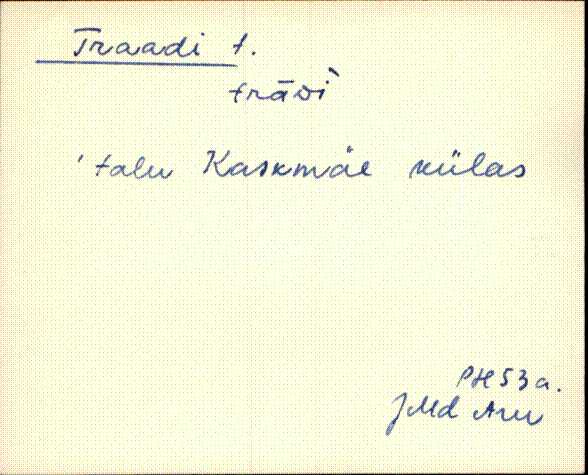 Traadi t.
trāDì
' talu Kaskmäe külas
PH 53 a.
JMd Aru